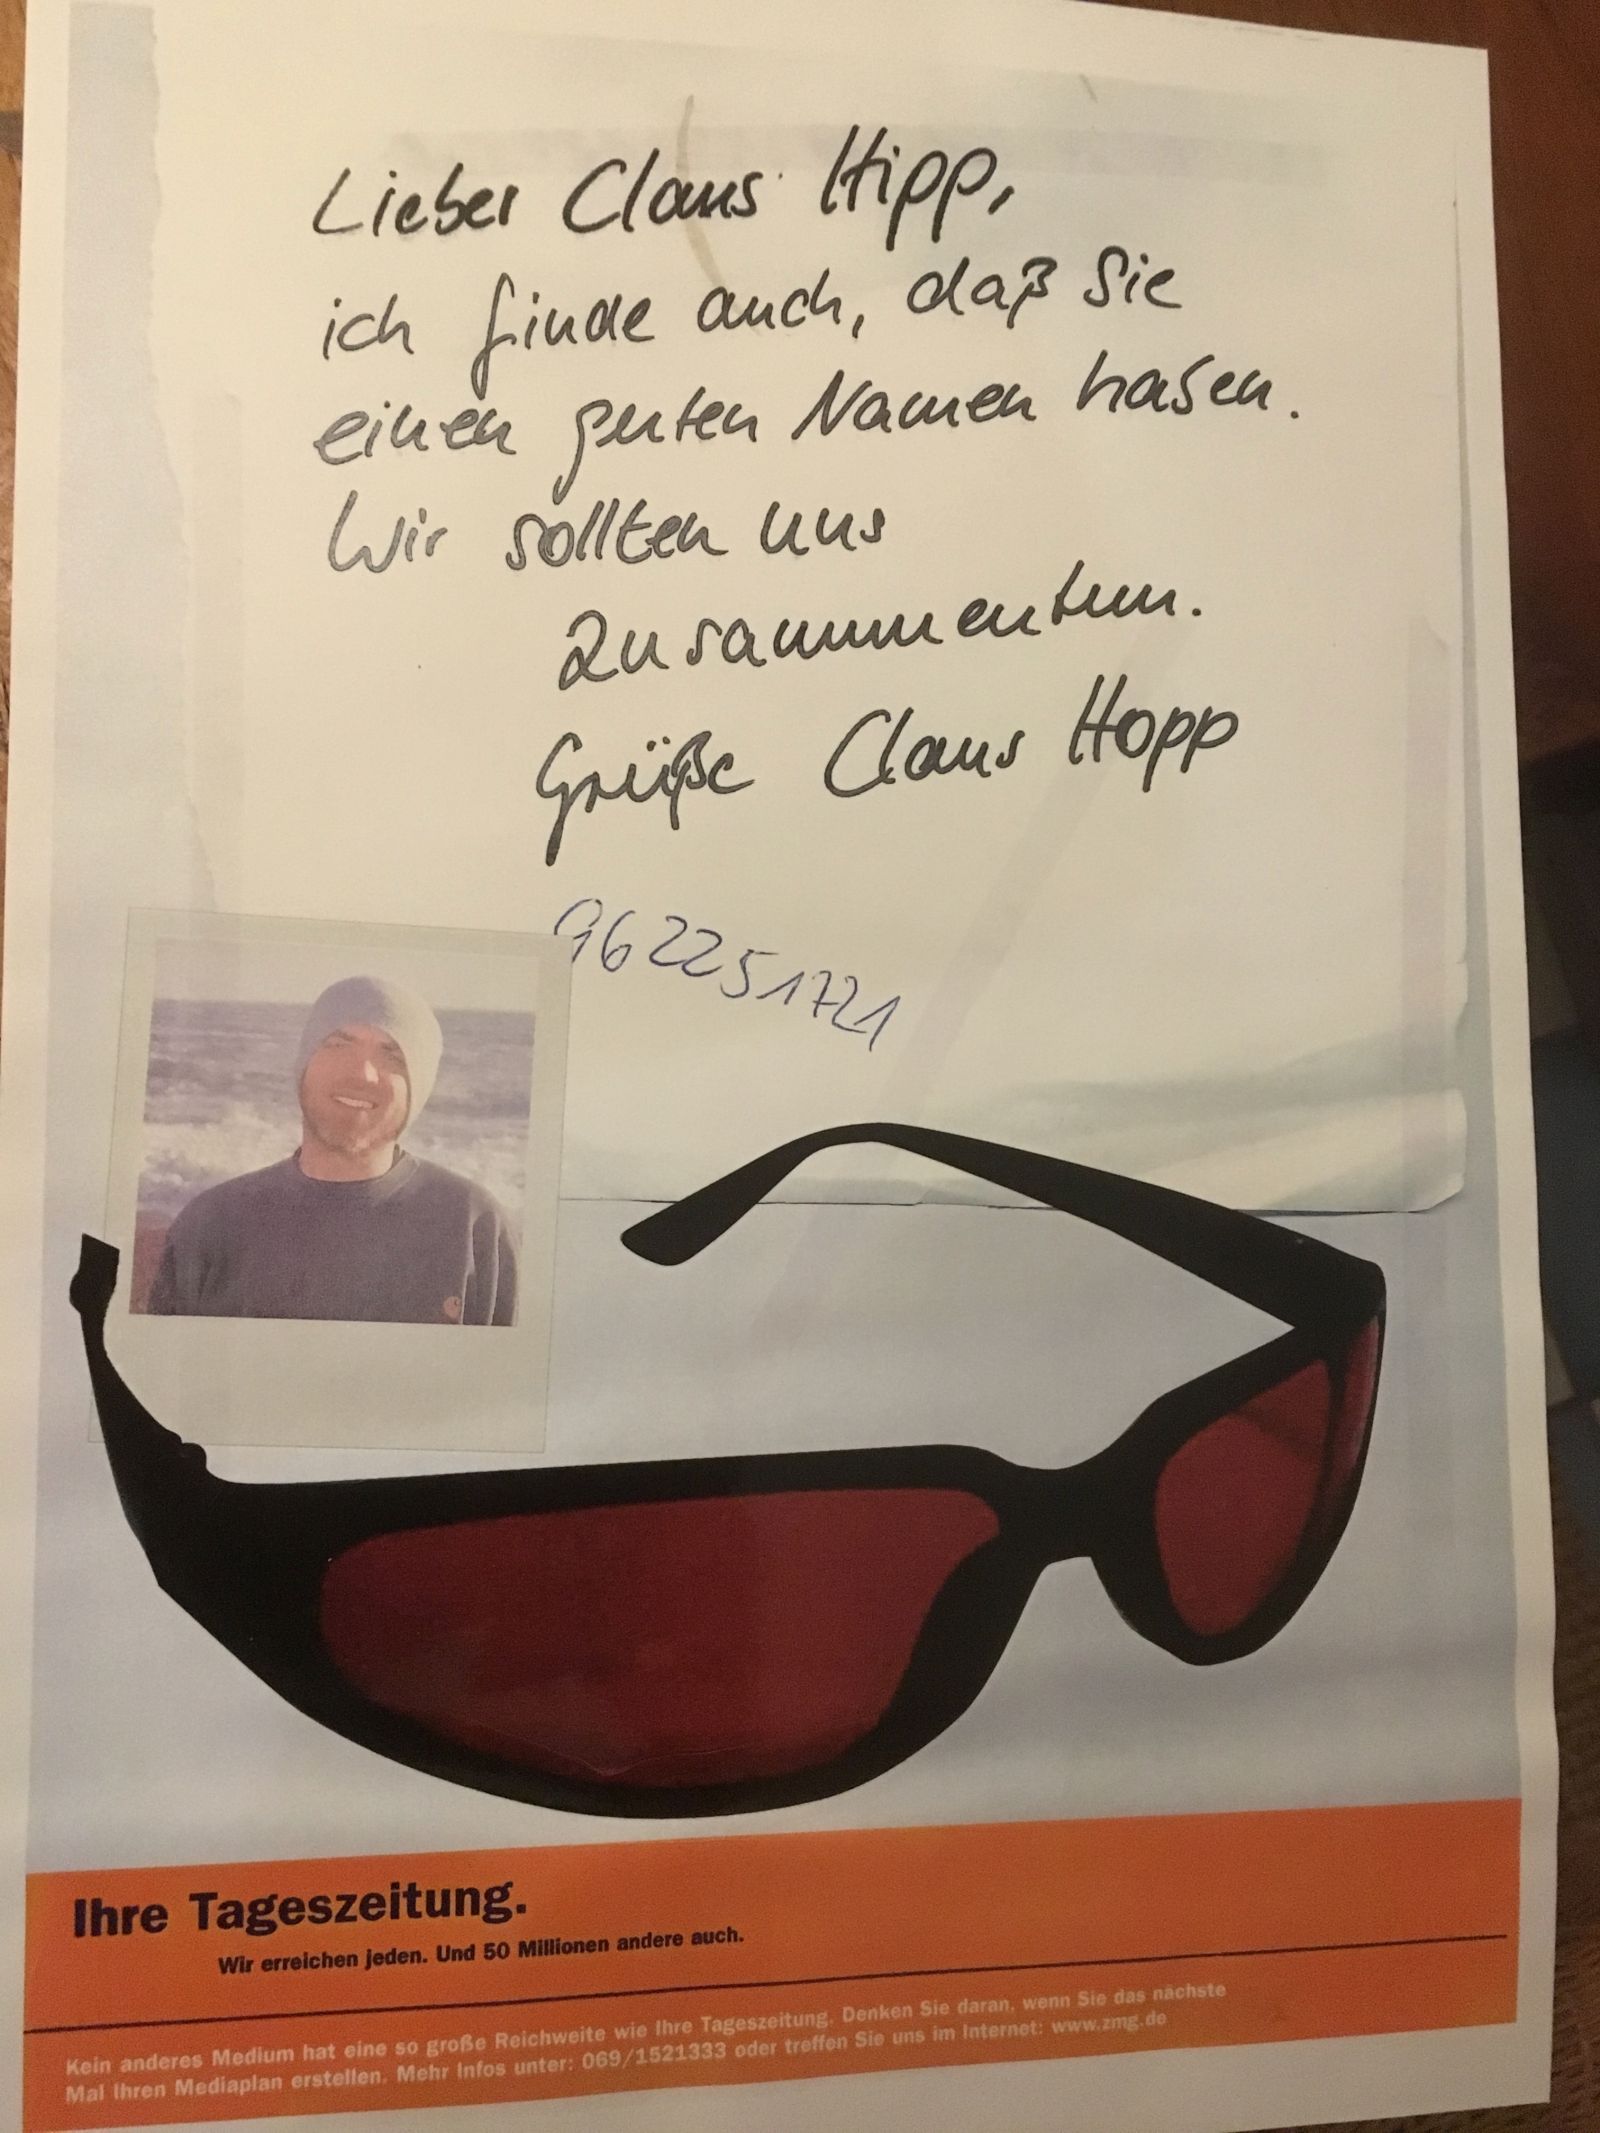 Lieber Claus Hipp,
ich finde auch, daß Sie
einen guten Namen haben.
Wir sollten uns
zusammentun.
Grüße Claus Hopp
9622251721
Ihre Tageszeitung.
Wir erreichen jeden. Und 50 Millionen andere auch.
Kein anderes Medium hat eine so große Reichweite wie Ihre Tageszeitung. Denken Sie daran, wenn Sie das nächste
Mal Ihren Mediaplan erstellen. Mehr Infos unter: 069/1521333 oder treffen Sie uns im Internet: www.zmg.de